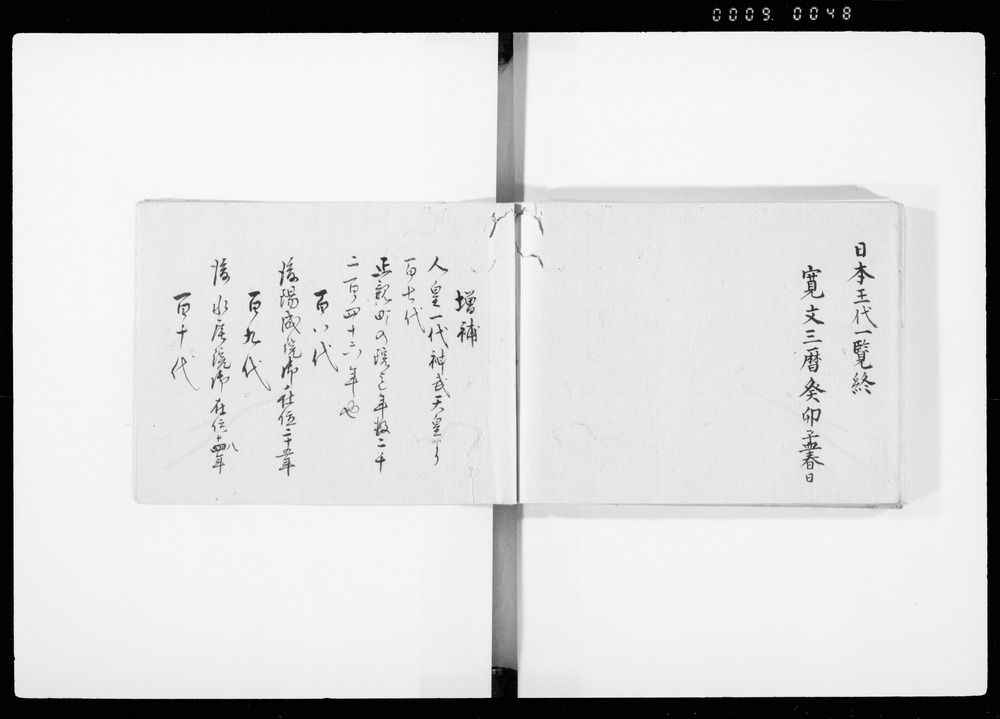 0009. 0048
日本王代一覧終
寛文三暦癸卯孟春日
増補
人皇一代神武天皇より
百七代
正親町の院迄年数二千
二百四十六年也
百八代
後陽成院御在位二十五年
百九代
後水尾院御在位十八年
百十代